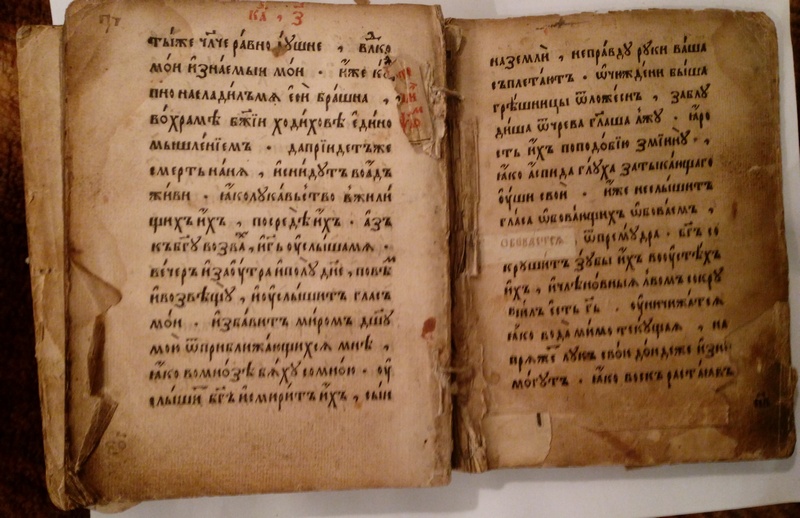 ка҃, з҃
ты́же чл҃че равно дꙋ́шне , влⷣко
мо́и и҆зна́емыи мо́и . и҆́же кꙋ́
пно насладилъмѧ є҆сѝ бра́шна ,
во́храмѣ бж҃їи ходи́ховѣ є҆ди́но
мышле́нїемъ . да прїи́детъже
сме́рть на́нѧ , и҆сни́дꙋтъ во а҆́дъ
жи́ви . ꙗ҆́ко лꙋка́вьство в жили́
щихъ и҆́хъ , посредѣ̀ и҆́хъ . а҆́зъ
къ бг҃ꙋ воззва́хъ , и҆ гь҃ ᲂу҆слы́ша мѧ .
ве́черъ и҆ заᲂу́тра и҆ полꙋ́ дн҃е , повѣ́мъ
и҆ возвѣщꙋ̀ , и҆ ᲂу҆слы́шитъ гла́съ
мо́и . и҆зба́витъ ми́ромъ дш҃ꙋ
мою̀ ѿ приближа́ющихсѧ мнѣ̀ ,
ꙗ҆́ко во мно́зѣ бѧ́хꙋ со мно́ю . ᲂу҆
слы́шитъ бг҃ъ и҆ смири́тъ и҆́хъ , сы́и
на землѝ , непра́вдꙋ рꙋ́ки ва́ша
съплета́ютъ . ѿчꙋжде́ни бы́ша
грѣ́шницы ѿ ложе́снъ , заблꙋ
ди́ша ѿ чре́ва гл҃аша лжꙋ̀ . ꙗ҆́ро
сть и҆́хъ по подо́бїю змїи́нꙋ . ,
ꙗ҆́ко а҆́спида глꙋ́ха затыка́ющаго
ᲂу҆́ши свои̑ . и҆́же не слы́шитъ
гла́са ѡ҆бова́ющихъ ѡ҆бова́емъ ,
обовается ѿ премꙋ́дра . бг҃ъ со
крꙋши́тъ зꙋ́бы и҆́хъ во ᲂу҆стѣ́хъ
и҆́хъ , и҆ члено́вныѧ льво́мъ сокрꙋ
ши́лъ є҆́сть гь҃ . ᲂу҆ничижа́тсѧ
ꙗ҆́ко вода̀ ми́мо текꙋ́щаѧ , на
прѧже́тъ лꙋ́къ сво́и до́ндеже и҆зне
мо́гꙋтъ . ꙗ҆́ко во́скъ раста́ѧвъ